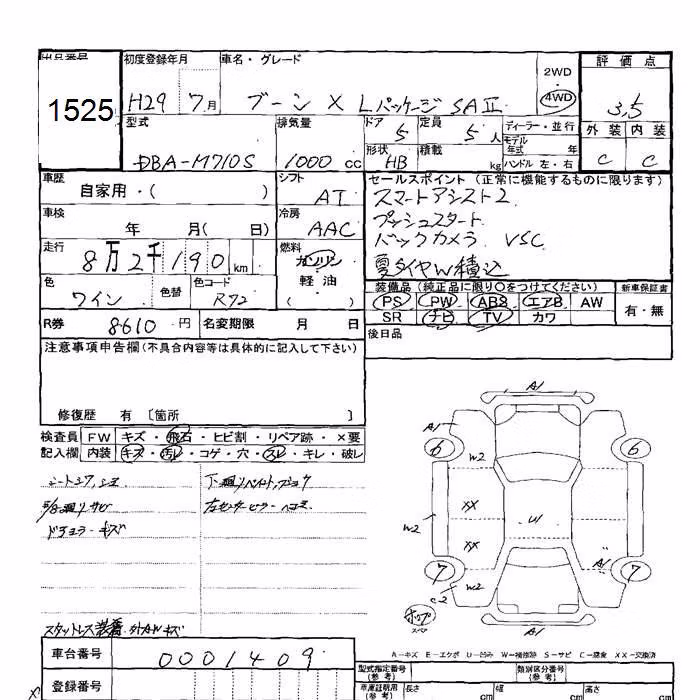 出品番号 初度登録年月 車名・グレード 評価点
1525 H29 7月 ブーン X Lパッケージ SAII 2WD 4WD 3.5
型式 排気量 ドア 定員 ディーラー・並行 外装 内装
DBA-M710S 1000cc 5 5人 モデル年式 年 C C
形状 HB 積載 kg ハンドル 左・右
車歴 自家用・( ) シフト AT セールスポイント (正常に機能するものに限ります)
スマートアシスト2
車検 年 月( 日) 冷房 AAC プッシュスタート
走行 8万2千190km 燃料 ガソリン バックカメラ VSC
軽油 ( ) 夏タイヤW積込
色 ワイン 色替 色コード R72 装備品 (純正品に限り○をつけてください) 新車保証書
PS PW ABS エアB AW 有・無
R券 8610円 名変期限 月 日 SR ナビ TV カワ
注意事項申告欄(不具合内容等は具体的に記入して下さい) 後日品
修復歴 有 〔箇所 〕
検査員 FW キズ・飛石・ヒビ割・リペア跡・×要
記入欄 内装 キズ・汚レ・コゲ・穴・スレ・キレ・破レ
シートシワ、シミ
ドアミラーキズ
左センターピラーヘコミ
スタットレス装着
A1
A1
6
W2
6
XX
W2
U1
XX
7
W2
A1
7
C2
A1
ホップ
スペア
A-キズ E-エクボ U-凹み W-補修跡 S-サビ C-腐食 XX-交換済
車台番号 0001409 型式指定番号(参考) 類別区分番号(参考)
登録番号 車庫証明用(参考) 長さ cm 幅 cm 高さ cm